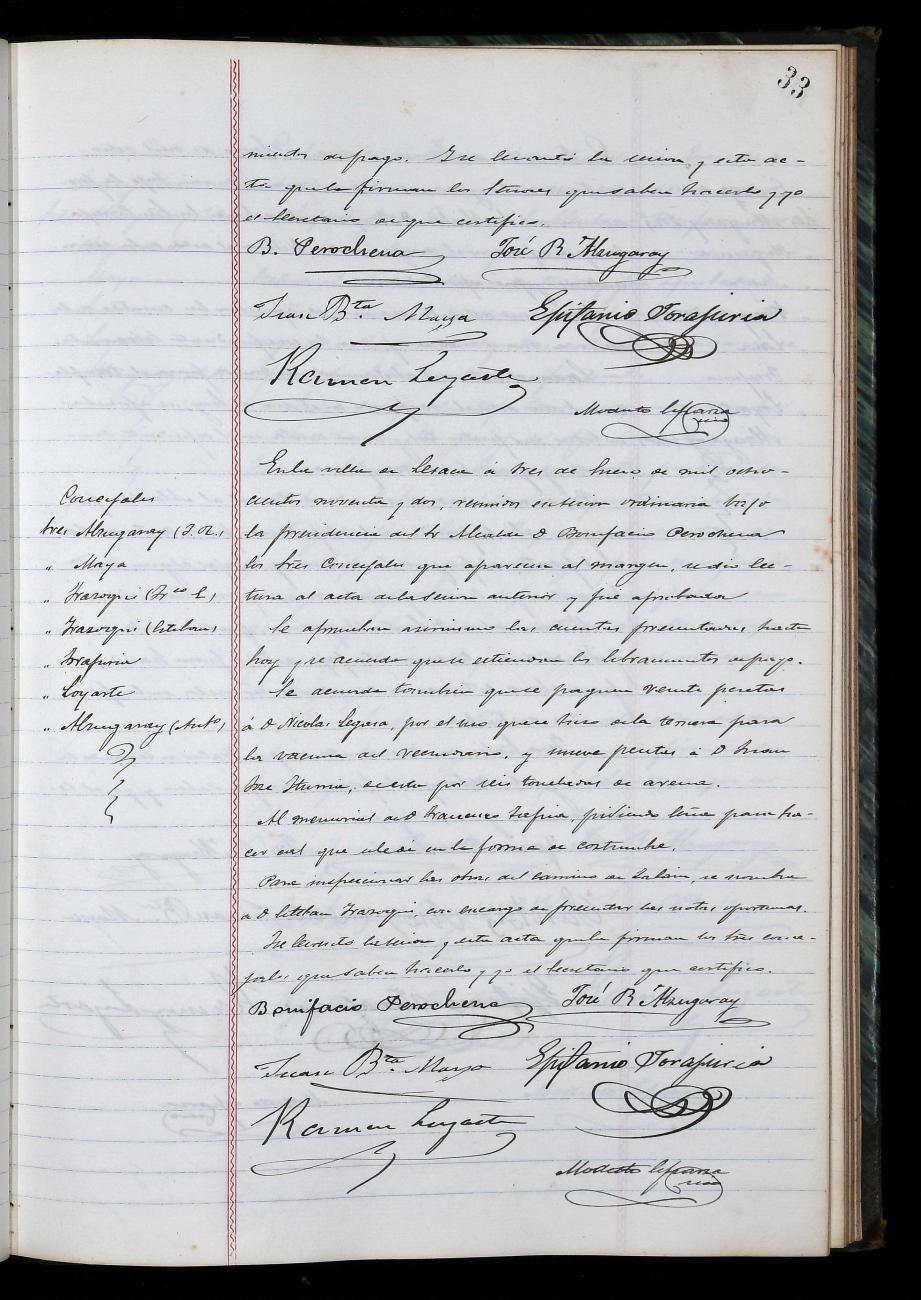 33
mientos de pago. Y se levantó la sesion y esta ac-
ta que la firman los Señores que saben hacerlo y yo
el Secretario de que certifico.
B. Perochena José R. Alzugaray
Juan Bta. Maya Epifanio Torajuria
Ramon Loyarte
Modesto
En la villa de Lesaca á tres de Enero de mil ocho-
cientos noventa y dos, reunidos en sesion ordinaria bajo
la presidencia del Sr Alcalde D Bonifacio Perochena
los Sres Concejales que aparecen al margen, se dio lec-
tura al acta de la sesion anterior y fué aprobada
Concejales
Sres Alzugaray (J. R.)
" Maya
" Irazoqui (Frco
" Irazoqui (Esteban)
" Torajuria
" Loyarte
" Alzugaray (Anto)
Se aprueban asimismo las cuentas presentadas hasta
hoy y se acuerda que se estiendan los libramientos de pago.
Se acuerda tambien que se paguen veinte pesetas
á D Nicolas Legasa, por el uso que se hizo de la ternera para
la vacuna del vecindario, y nueve pesetas á D Juan
José Iturria, de esta por seis toneladas de arena.
Al memorial de D Francisco, pidiendo leña para ha-
cer cal que se le dé en la forma de costumbre.
Para inspeccionar las obras del camino de, se nombra
a D Esteban Irazoqui, con encargo de presentar las notas oportunas.
Y se levantó la sesion y esta acta que la firman los Sres conce-
jales que saben hacerlo y yo el Secretario que certifico.
Bonifacio Perochena José R. Alzugaray
Juan Bta. Maya Epifanio Torajuria
Ramon Loyarte
Modesto